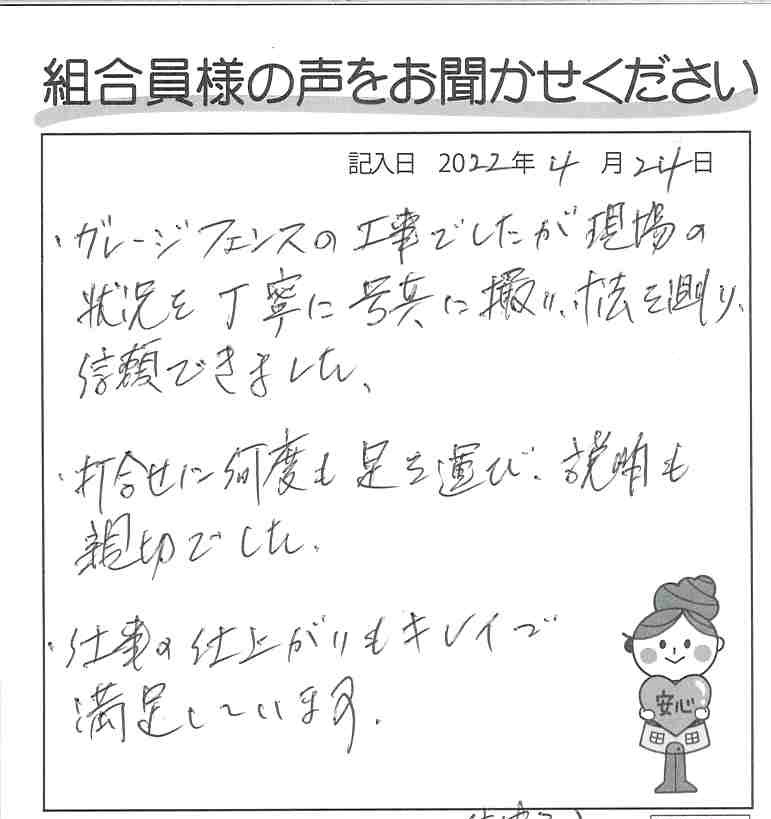 組合員様の声をお聞かせください
記入日 2022年 4月 24日
・ガレージフェンスの工事でしたが現場の
状況を丁寧に写真に撮り、寸法を測り、
信頼できました、
・打合せに何度も足を運び、説明も
親切でした、
・仕事の仕上がりもキレイで
満足しています。
安心